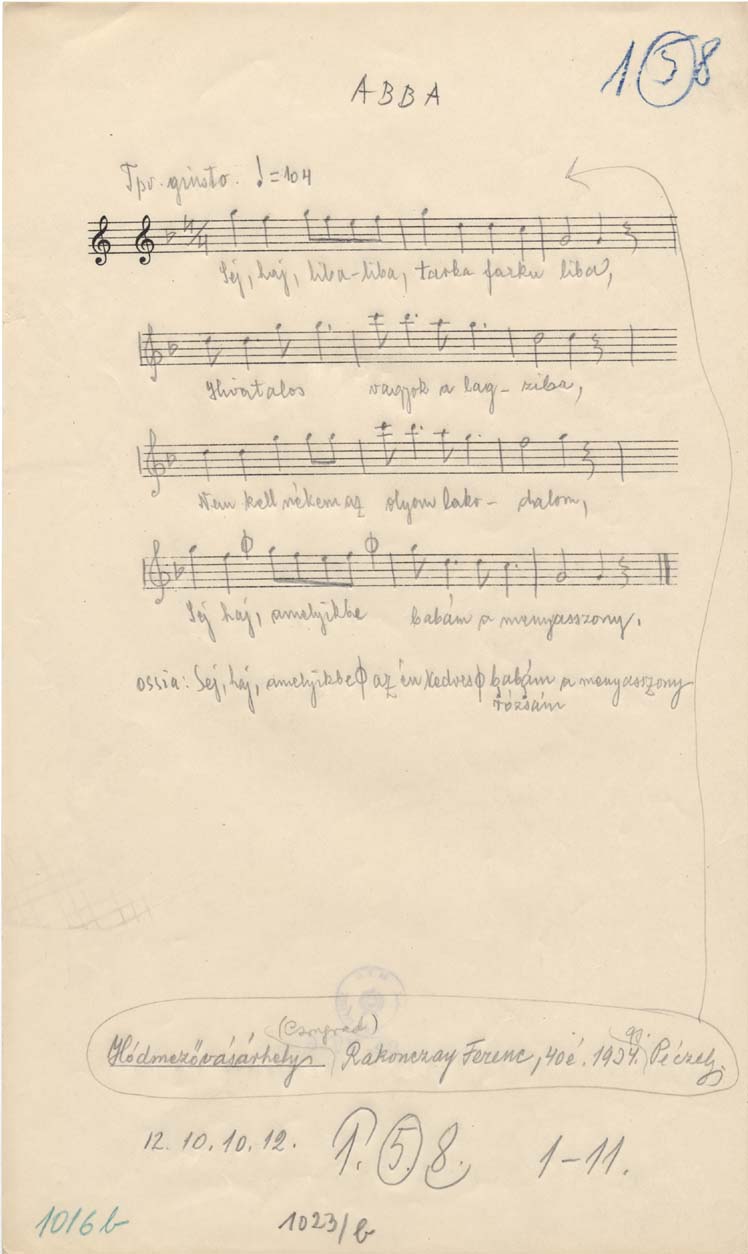 1 5 8
ABBA
Tpo. giusto. ♩=104
4/4
Séj, haj, liba-liba, tarka farku liba,
Hivatalos vagyok a lag-ziba,
Nem kell nékem az olyan lako-dalom,
Séj haj, amelyikbe babám a menyasszony.
ossia: Séj, haj, amelyikbe ϕ az én kedves ϕ babám a menyasszony
rózsám
(Csongrád)
Hódmezővásárhely Rakonczay Ferenc, 40 é. 1934. gy. Péczely
12. 10. 10. 12. 1. 5. 8. 1-11.
1016 b 1023/b